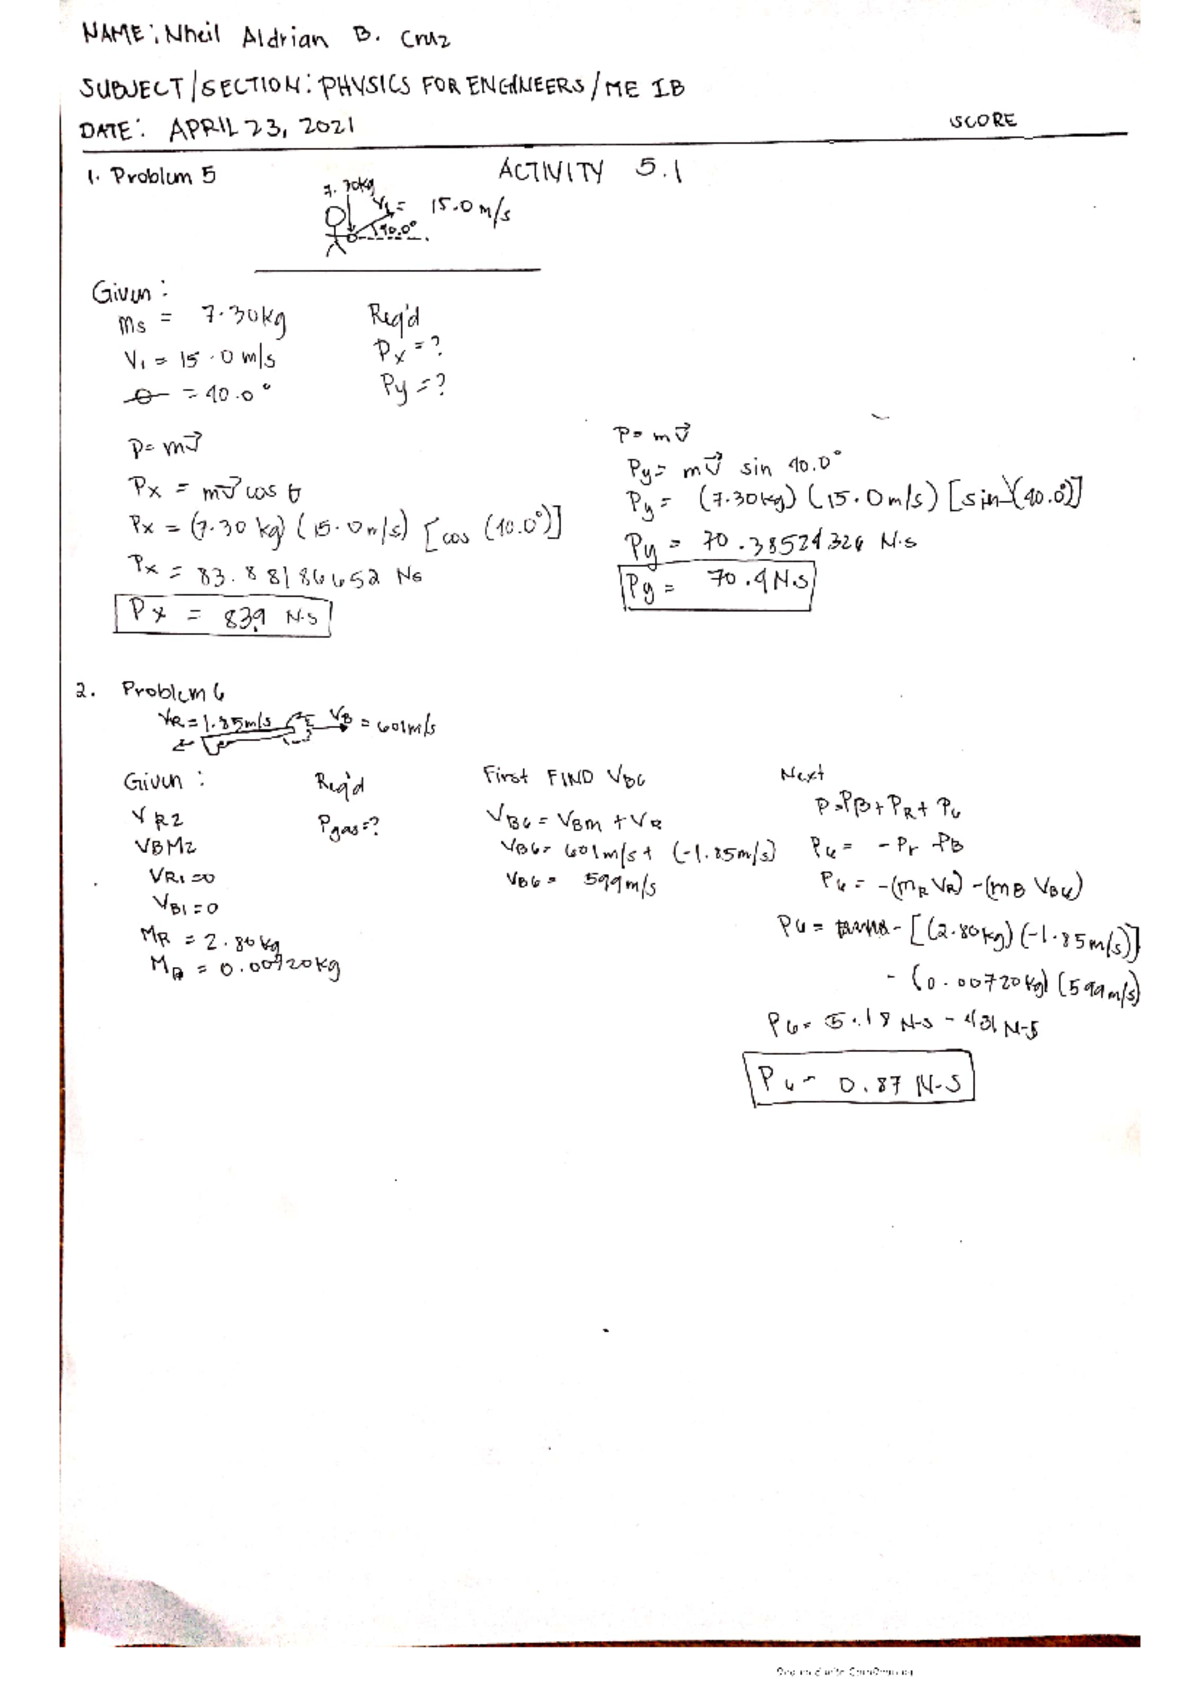 NAME: Nheil Aldrian B. Cruz
SUBJECT/SECTION: PHYSICS FOR ENGINEERS/ME IB
DATE: APRIL 23, 2021
SCORE
ACTIVITY 5.1
1. Problem 5
7.30kg
V1 = 15.0 m/s
40.0°
Given:
Ms = 7.30kg
V1 = 15.0 m/s
θ = 40.0°
Req'd
Px = ?
Py = ?
P = mv⃗
Px = mv⃗ cos θ
Px = (7.30 kg) (15.0 m/s) [cos (40.0°)]
Px = 83.88186652 Ns
Px = 83.9 N·s
P = mv⃗
Py = mv⃗ sin 40.0°
Py = (7.30kg) (15.0 m/s) [sin (40.0°)]
Py = 70.38524326 N·s
Py = 70.4 N·s
2. Problem 6
VR = 1.85m/s
VB = 601m/s
Given:
VR2
VBM2
VR1 = 0
VB1 = 0
MR = 2.80kg
MB = 0.00720kg
Req'd
Pgas = ?
First FIND VBG
VBG = VBM + VR
VBG = 601m/s + (-1.85m/s)
VBG = 599m/s
Next
P = PB + PR + PG
PG = -Pr - PB
PG = -(mR VR) - (mB VBG)
PG = - [(2.80kg) (-1.85m/s)]
- (0.00720kg) (599m/s)
PG = 5.18 N-s - 431 N-s
PG = 0.87 N-S